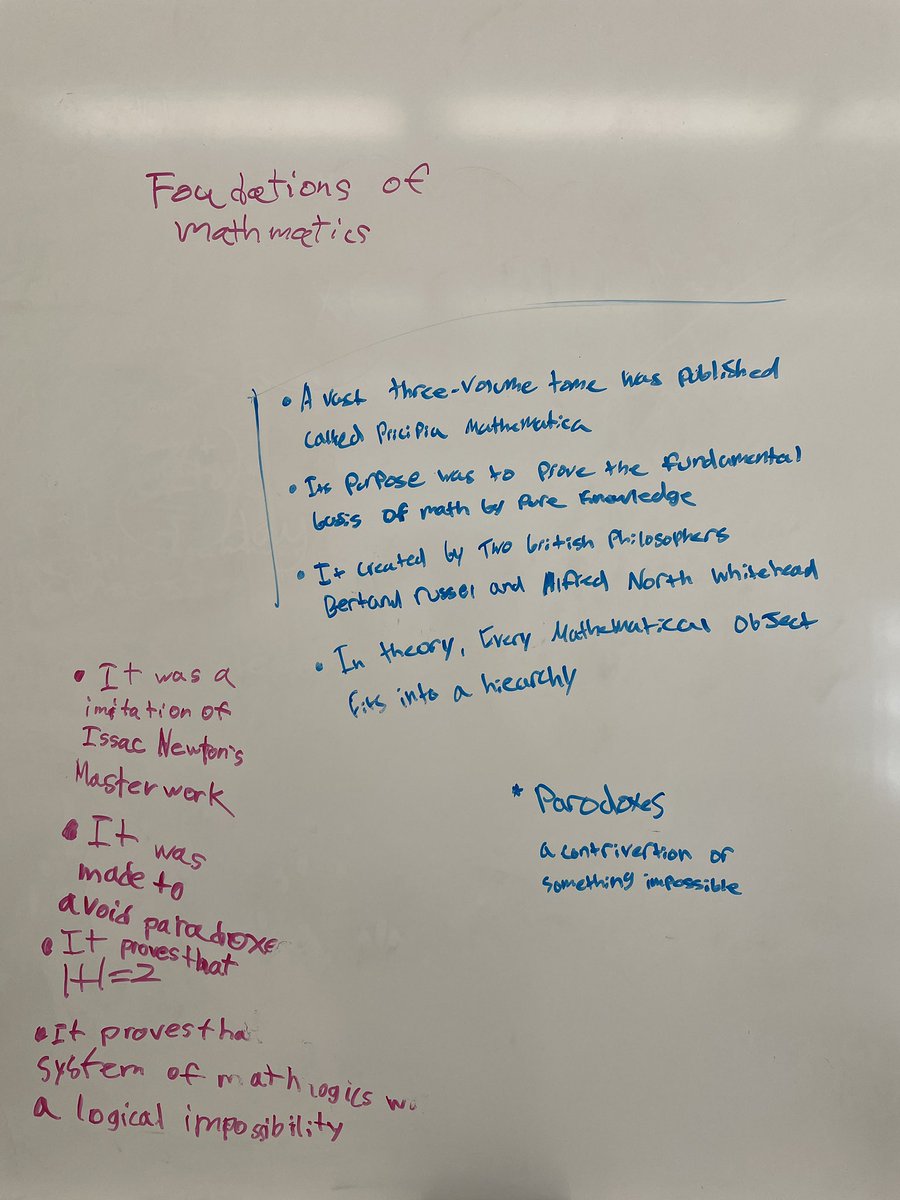 Foudations of
mathmatics
• A vast three-volume tome was published
called Pricipia Mathematica
• Its purpose was to prove the fundamental
basis of math by pure knowledge
• It created by Two british Philosophers
Bertand russel and Alfred North whitehead
• In theory, Every Mathematical object
fits into a hiearchy
• It was a
imitation of
Issac Newton's
Master work
• It was
made to
avoid paradoxe
• It proves that
1+1=2
• It proves tha
system of math logics w
a logical impossibility
* Paradoxes
a contrivertion or
something impossible